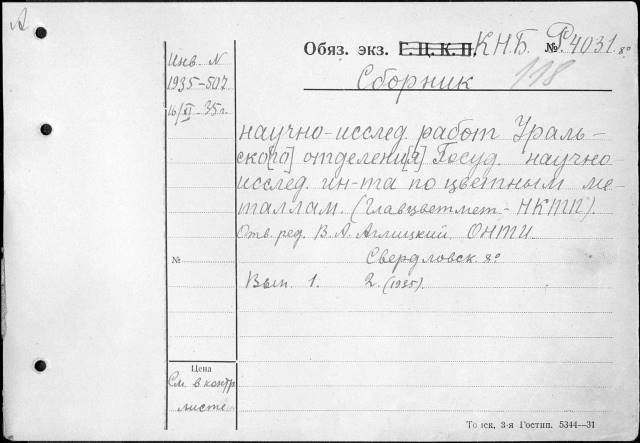 А
Обяз. экз. Г. Ц. К. П. К.Н.Б. № Р4031. 8º
Инв. N
1935-507
16/XI 35 г.
Сборник
118
научно-исслед. работ Ураль-
ско[го] отделени[я] Госуд. научно-
исслед. ин-та по цветным ме-
таллам. (Главцветмет - НКТП).
Отв. ред. В. А. Аглицкий. ОНТИ
Свердловск. 8º
№
Вып. 1. 2. (1935).
Цена
См. в контр
листе
Томск, 3-я Гостип. 5344—31